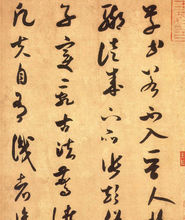 草書若不入晉人格
輒徒成下品張顛俗
子變亂古法驚諸
凡夫自有識者